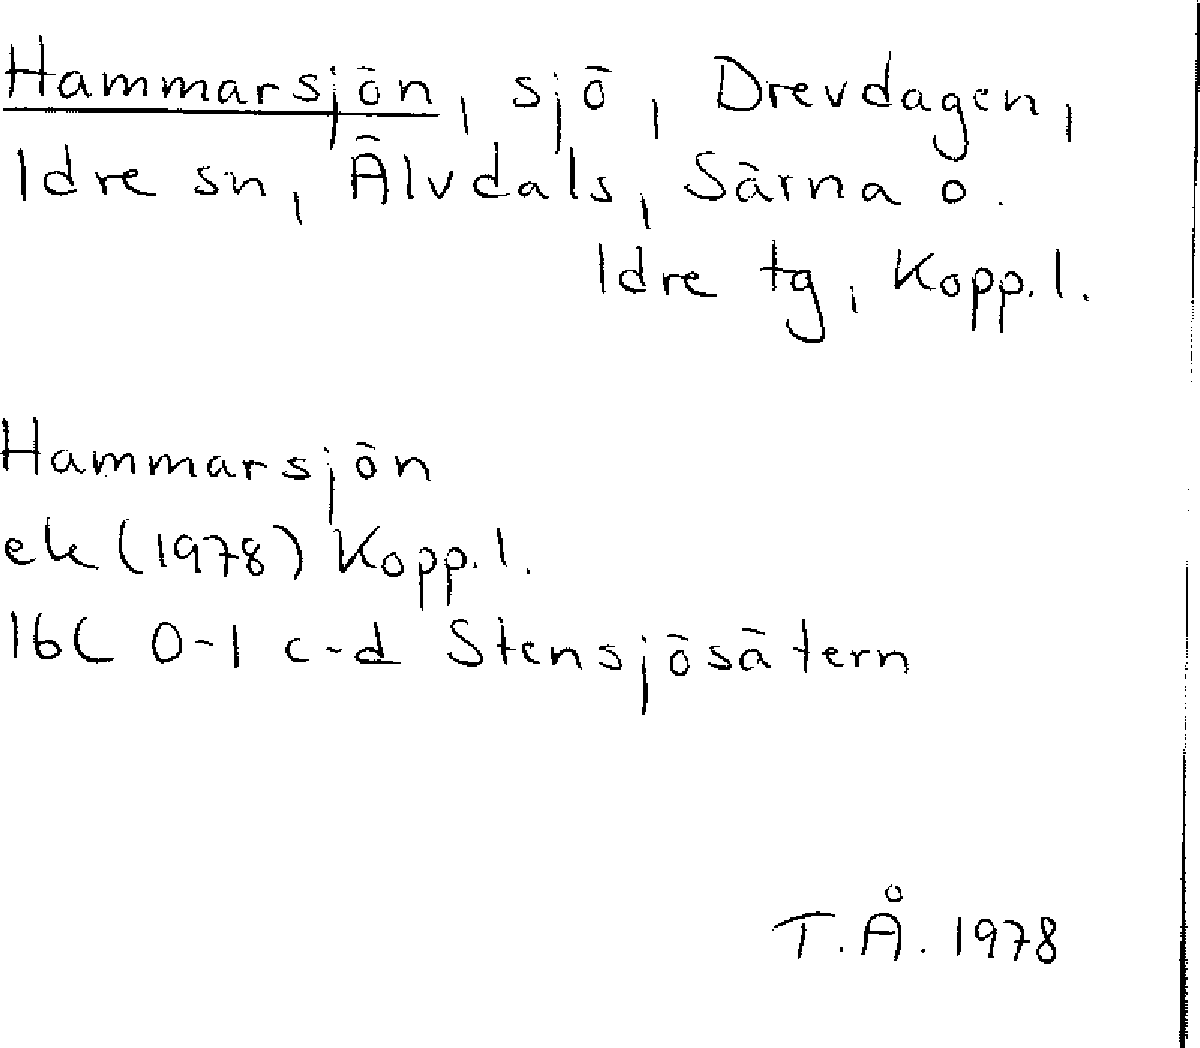 Hammarsjön, sjö, Drevdagen,
Idre sn, Älvdals, Särna o.
Idre tg, Kopp.l.
Hammarsjön
ek (1978) Kopp.l.
16C 0-1 c-d Stensjösätern
T.Å. 1978